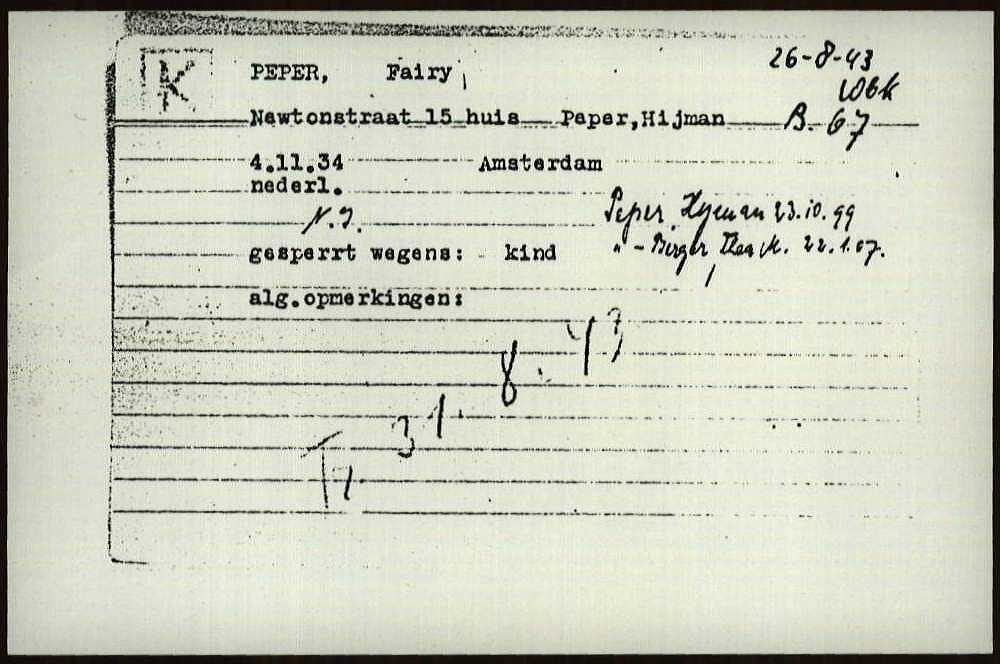 K
PEPER, Fairy
26-8-43
Newtonstraat 15 huis Peper,Hijman B. 67
4.11.34 Amsterdam
nederl.
Peper, Hyman 23.10.99
" - Thea M. 22.1.07.
gesperrt wegens: - kind
alg.opmerkingen:
Tr. 31. 8. 43